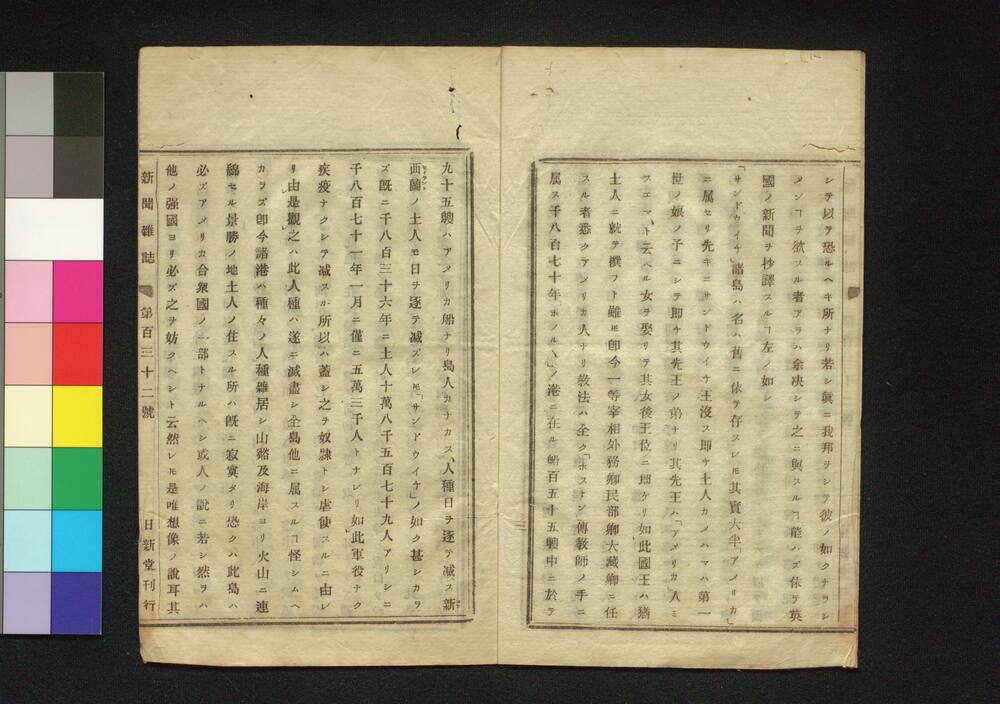 シテ以テ恐ルヘキ所ナリ若シ眞ニ我邦ヲシテ彼ノ如クナラシ
メンヿヲ欲スル者アラハ余决シテ之ニ與スルヿ能ハズ依テ英
國ノ新聞ヲ抄譯スルヿ左ノ如シ
「サンドウイチ」諸島ハ名ハ舊ニ依テ存スレモ其實大半「アメリカ」
ニ属セリ先キニサンドウイチ王沒ス即チ土人カメハマハ第一
世ノ娘ノ子ニシテ即チ其先王ノ弟ナリ其先王ハ「アメリカ人ミ
スエマ、ト云ヘル女ヲ娶リテ其女後王位ニ即ケリ如此國王ハ猶
土人ニ就テ撰フト雖モ即今一等宰相外務卿民部卿大藏卿ニ任
スル者悉クアメリカ人ナリ教法ハ全ク「ホストン傳教師ノ手ニ
属ス千八百七十年ホノルヽノ港ニ在ル船百五十五艘中ニ於テ
九十五艘ハアメリカ船ナリ島人カナカス、人種日ヲ逐テ减ス新
西蘭ノ土人モ日ヲ逐テ减ズレモ「サンドウイチ」ノ如ク甚シカラ
ズ既ニ千八百三十六年ニ土人十萬八千五百七十九人アリシニ
千八百七十一年一月ニ僅ニ五萬三千人トナレリ如此軍役ナク
疾疫ナクシテ减スル所以ハ蓋シ之ヲ奴隷トシ虐使スルニ由レ
リ由是觀之ハ此人種ハ遂ニ滅盡シ全島他ニ属スルヿ怪シムヘ
カラズ即今諸港ハ種々ノ人種雜居シ山谿及海岸ヨリ火山ニ連
綿セル景勝ノ地土人ノ住スル所ハ既ニ寂寞タリ恐クハ此島ハ
必ズアメリカ合衆國ノ一部トナルヘシ或人ノ說ニ若シ然ラハ
他ノ强國ヨリ必ズ之ヲ妨クヘシト云然レモ是唯想像ノ說耳其
新聞雜誌 第百三十二號 日新堂刊行